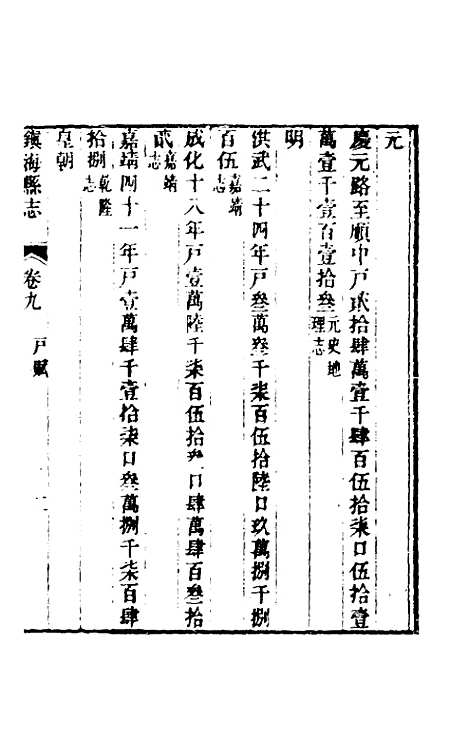 元
慶元路至順中戶貳拾肆萬壹千肆百伍拾柒口伍拾壹
萬壹千壹百壹拾叄元史地理志
明
洪武二十四年戶叄萬叄千柒百伍拾陸口玖萬捌千捌
百伍嘉靖志
成化十八年戶壹萬陸千柒百伍拾 口肆萬肆百叄拾
貳嘉靖志
嘉靖四十一年戶壹萬肆千壹拾柒口叄萬捌千柒百肆
拾捌乾隆志
皇朝
鎮海縣志 卷九 戶賦